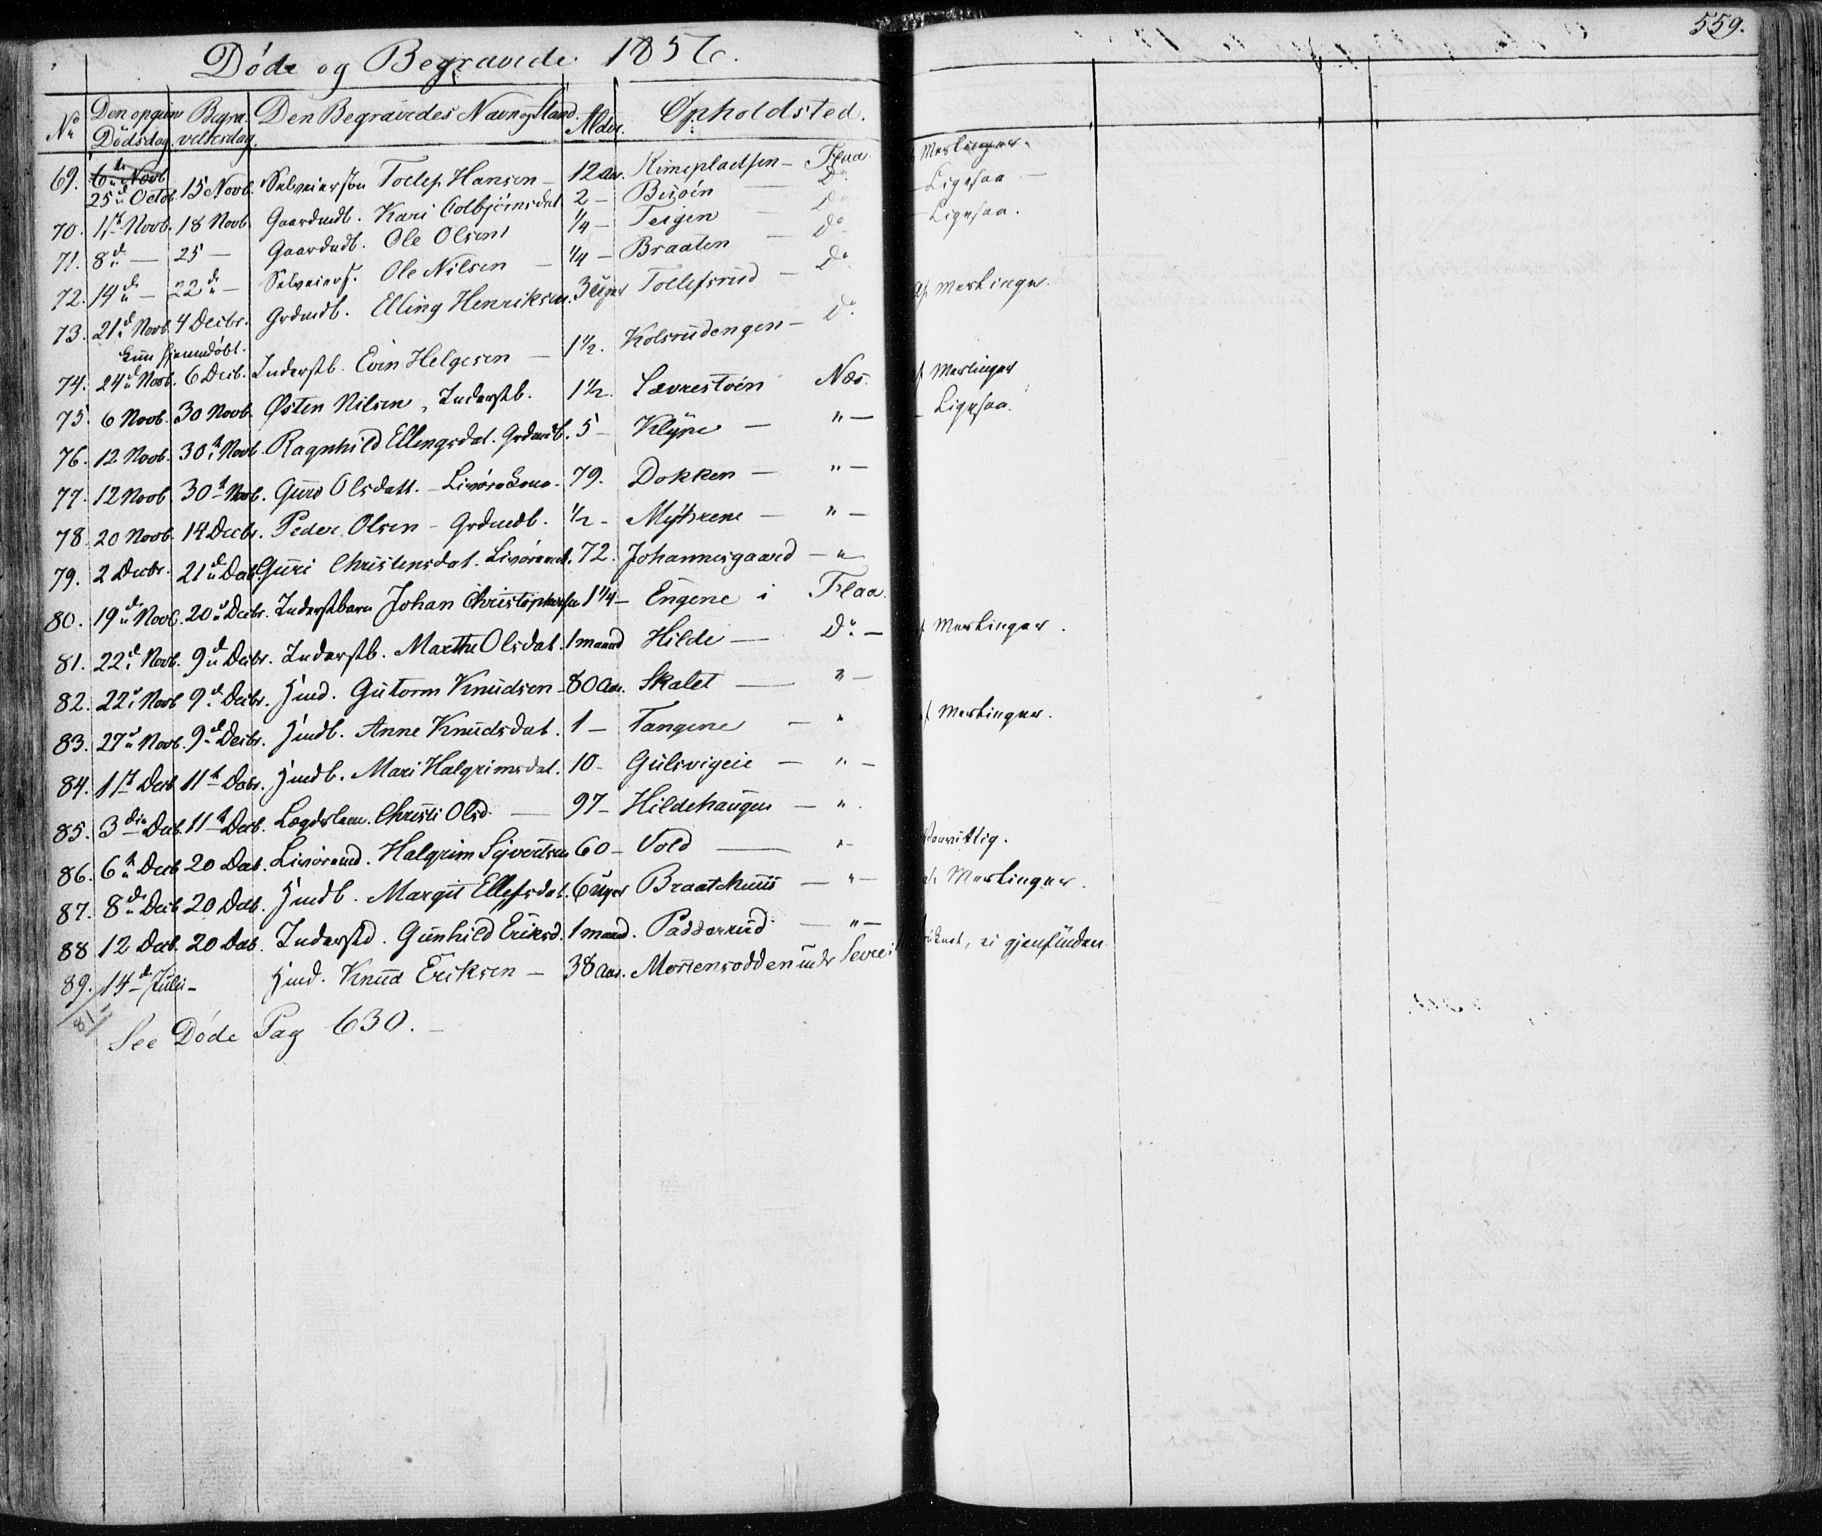 559.
Døde og Begravede 1856.
No Den opgivne Dødsdag. Begravelsesdag. Den Begravedes Navn og Stand. Alder. Opholdsted.
69. 6te Novb. 25de Octob. 15 Novb. Selveierson Tollef Hansen — 12 Aar. Rimepladsen — Flaa. Meslinger.
70. 1ste Novb. 18 Novb. Gaardmdb. Kari Colbjörnsdat. 2 — Do — Ligesaa —
71. 8de — 25 — Gaardmdb. Ole Olsen ¼ — Teigen — Do — Ligesaa.
72. 14de — 22de — Selveierf. Ole Nilsen — ¼ — Braaten — Do
73. 21de Novb. 4 Decbr. Grdmdb. Elling Henriksen. 3 Uger Tollefsrud — Do af Meslinger.
kun hjemmedøbt.
74. 24de Novb. 6 Decb. Inderstb. Even Helgesen — 1½. Kolsrudengen — Do.
75. 6 Novb. 30 Novb. Østen Nilsen, Inderstb. 1½. Sævrestøen Næs. af Meslinger
76. 12 Novb. 30te Novb. Ragnhild Ellingsdat. Grdmdb. 5 — Klype — " — — Ligesaa.
77. 12 Novb. 30te Novb. Guro Olsdatt. — Livørekone. 79. Dokken — " —
78. 20 Novb. 14 Decbr. Peder Olsen — Grdmdb. ½ — Myhrene — " —
79. 2 Decbr. 21de Decb. Guri Christensdat. Livøremd. 72. Johannesgaard — " —
80. 19de Novb. 20de Decbr. Inderstbarn Johan Christophersen 1¼ — Engene i Flaa.
81. 22de Novb. 9de Decbr. Inderstb. Marthe Olsdat. 1 maaned Hilde — Do. — af Meslinger.
82. 22de Novb. 9de Decbr. Hmd. Gutorm Knudsen — 80 Aar. Skalet — " —
83. 27de Novb. 9de Decbr. Hmdb. Anne Knudsdat. 1 — Tangene — " af Meslinger.
84. 1ste Decb. 11te Decbr. Hmdb. Mari Halgrimsdat. 10 — Gulsvigeie — " —
85. 3die Decb. 11te Decb. Lægdslem. Christi Olsd. — 97 — Hildehaugen — ".
86. 6te Decb. 20 Decb. Livøremd. Halgrim Syvertsen 60 — Vold — " —
87. 8de Decb. 20 Decb. Hmdb. Margit Ellefsdat. 6 Uger Braathuus — " — af Meslinger.
88 12 Decb. 20 Decb. Inderstd. Gunhild Eriksd. 1 maaned. Padderud — " —
89. 14de Juli — Hmd. Knud Eriksen — 38 Aar. Mortensodden under Sevre, ei gjenfunden
81
See Døde Pag 630. —